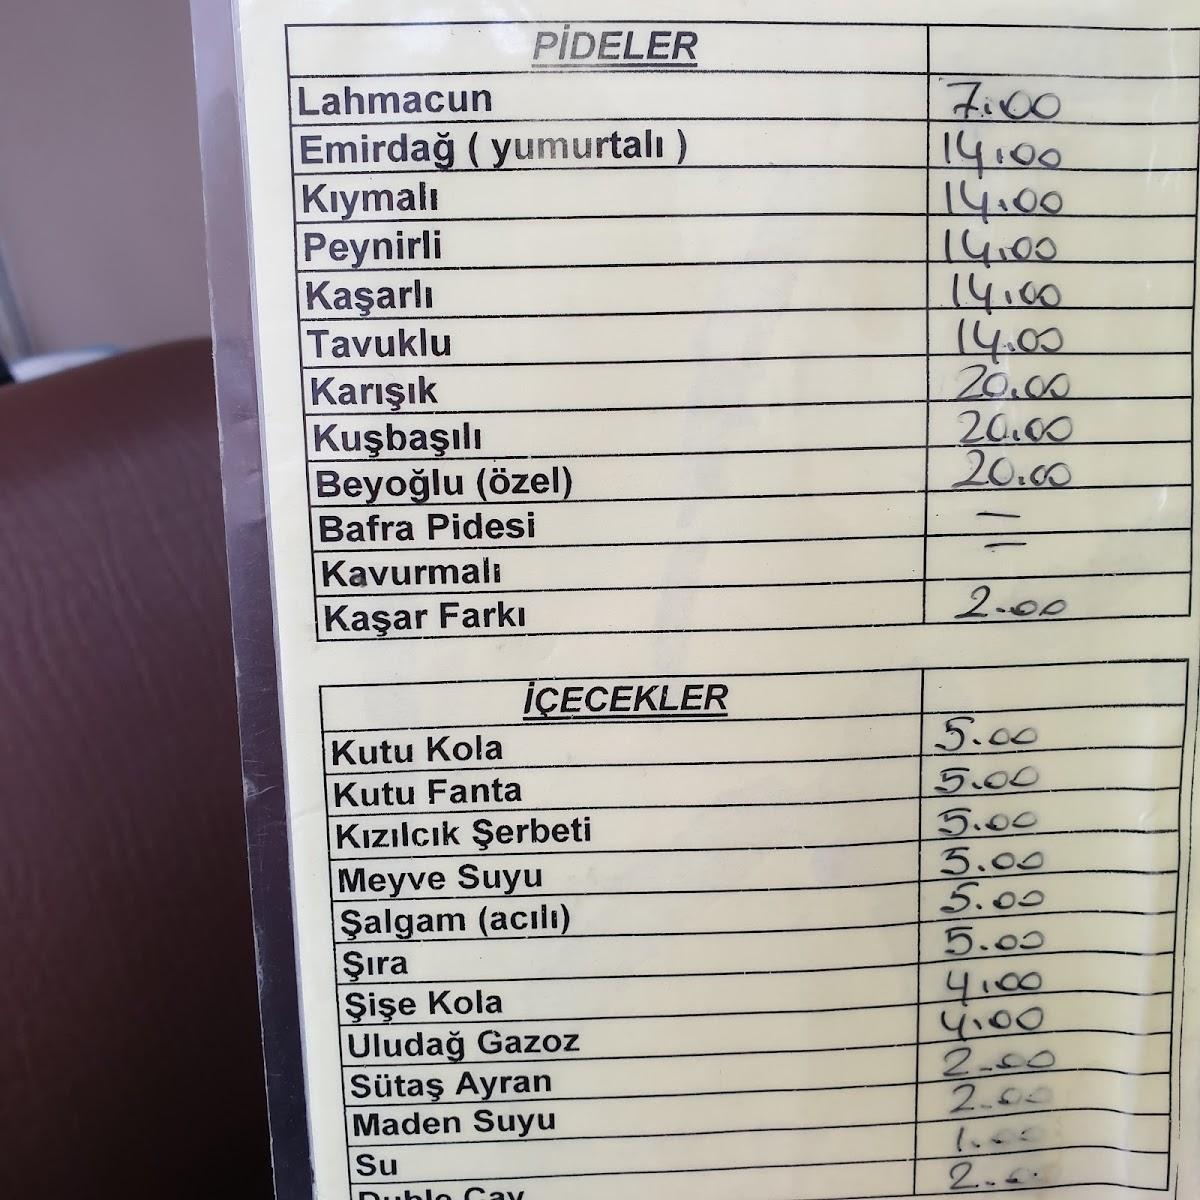 PİDELER
Lahmacun 7.00
Emirdağ ( yumurtalı ) 14.00
Kıymalı 14.00
Peynirli 14.00
Kaşarlı 14.00
Tavuklu 14.00
Karışık 20.00
Kuşbaşılı 20.00
Beyoğlu (özel) 20.00
Bafra Pidesi —
Kavurmalı —
Kaşar Farkı 2.00
İÇECEKLER
Kutu Kola 5.00
Kutu Fanta 5.00
Kızılcık Şerbeti 5.00
Meyve Suyu 5.00
Şalgam (acılı) 5.00
Şıra 5.00
Şişe Kola 4.00
Uludağ Gazoz 4.00
Sütaş Ayran 2.00
Maden Suyu 2.00
Su 1.00
Duble Çay 2.00